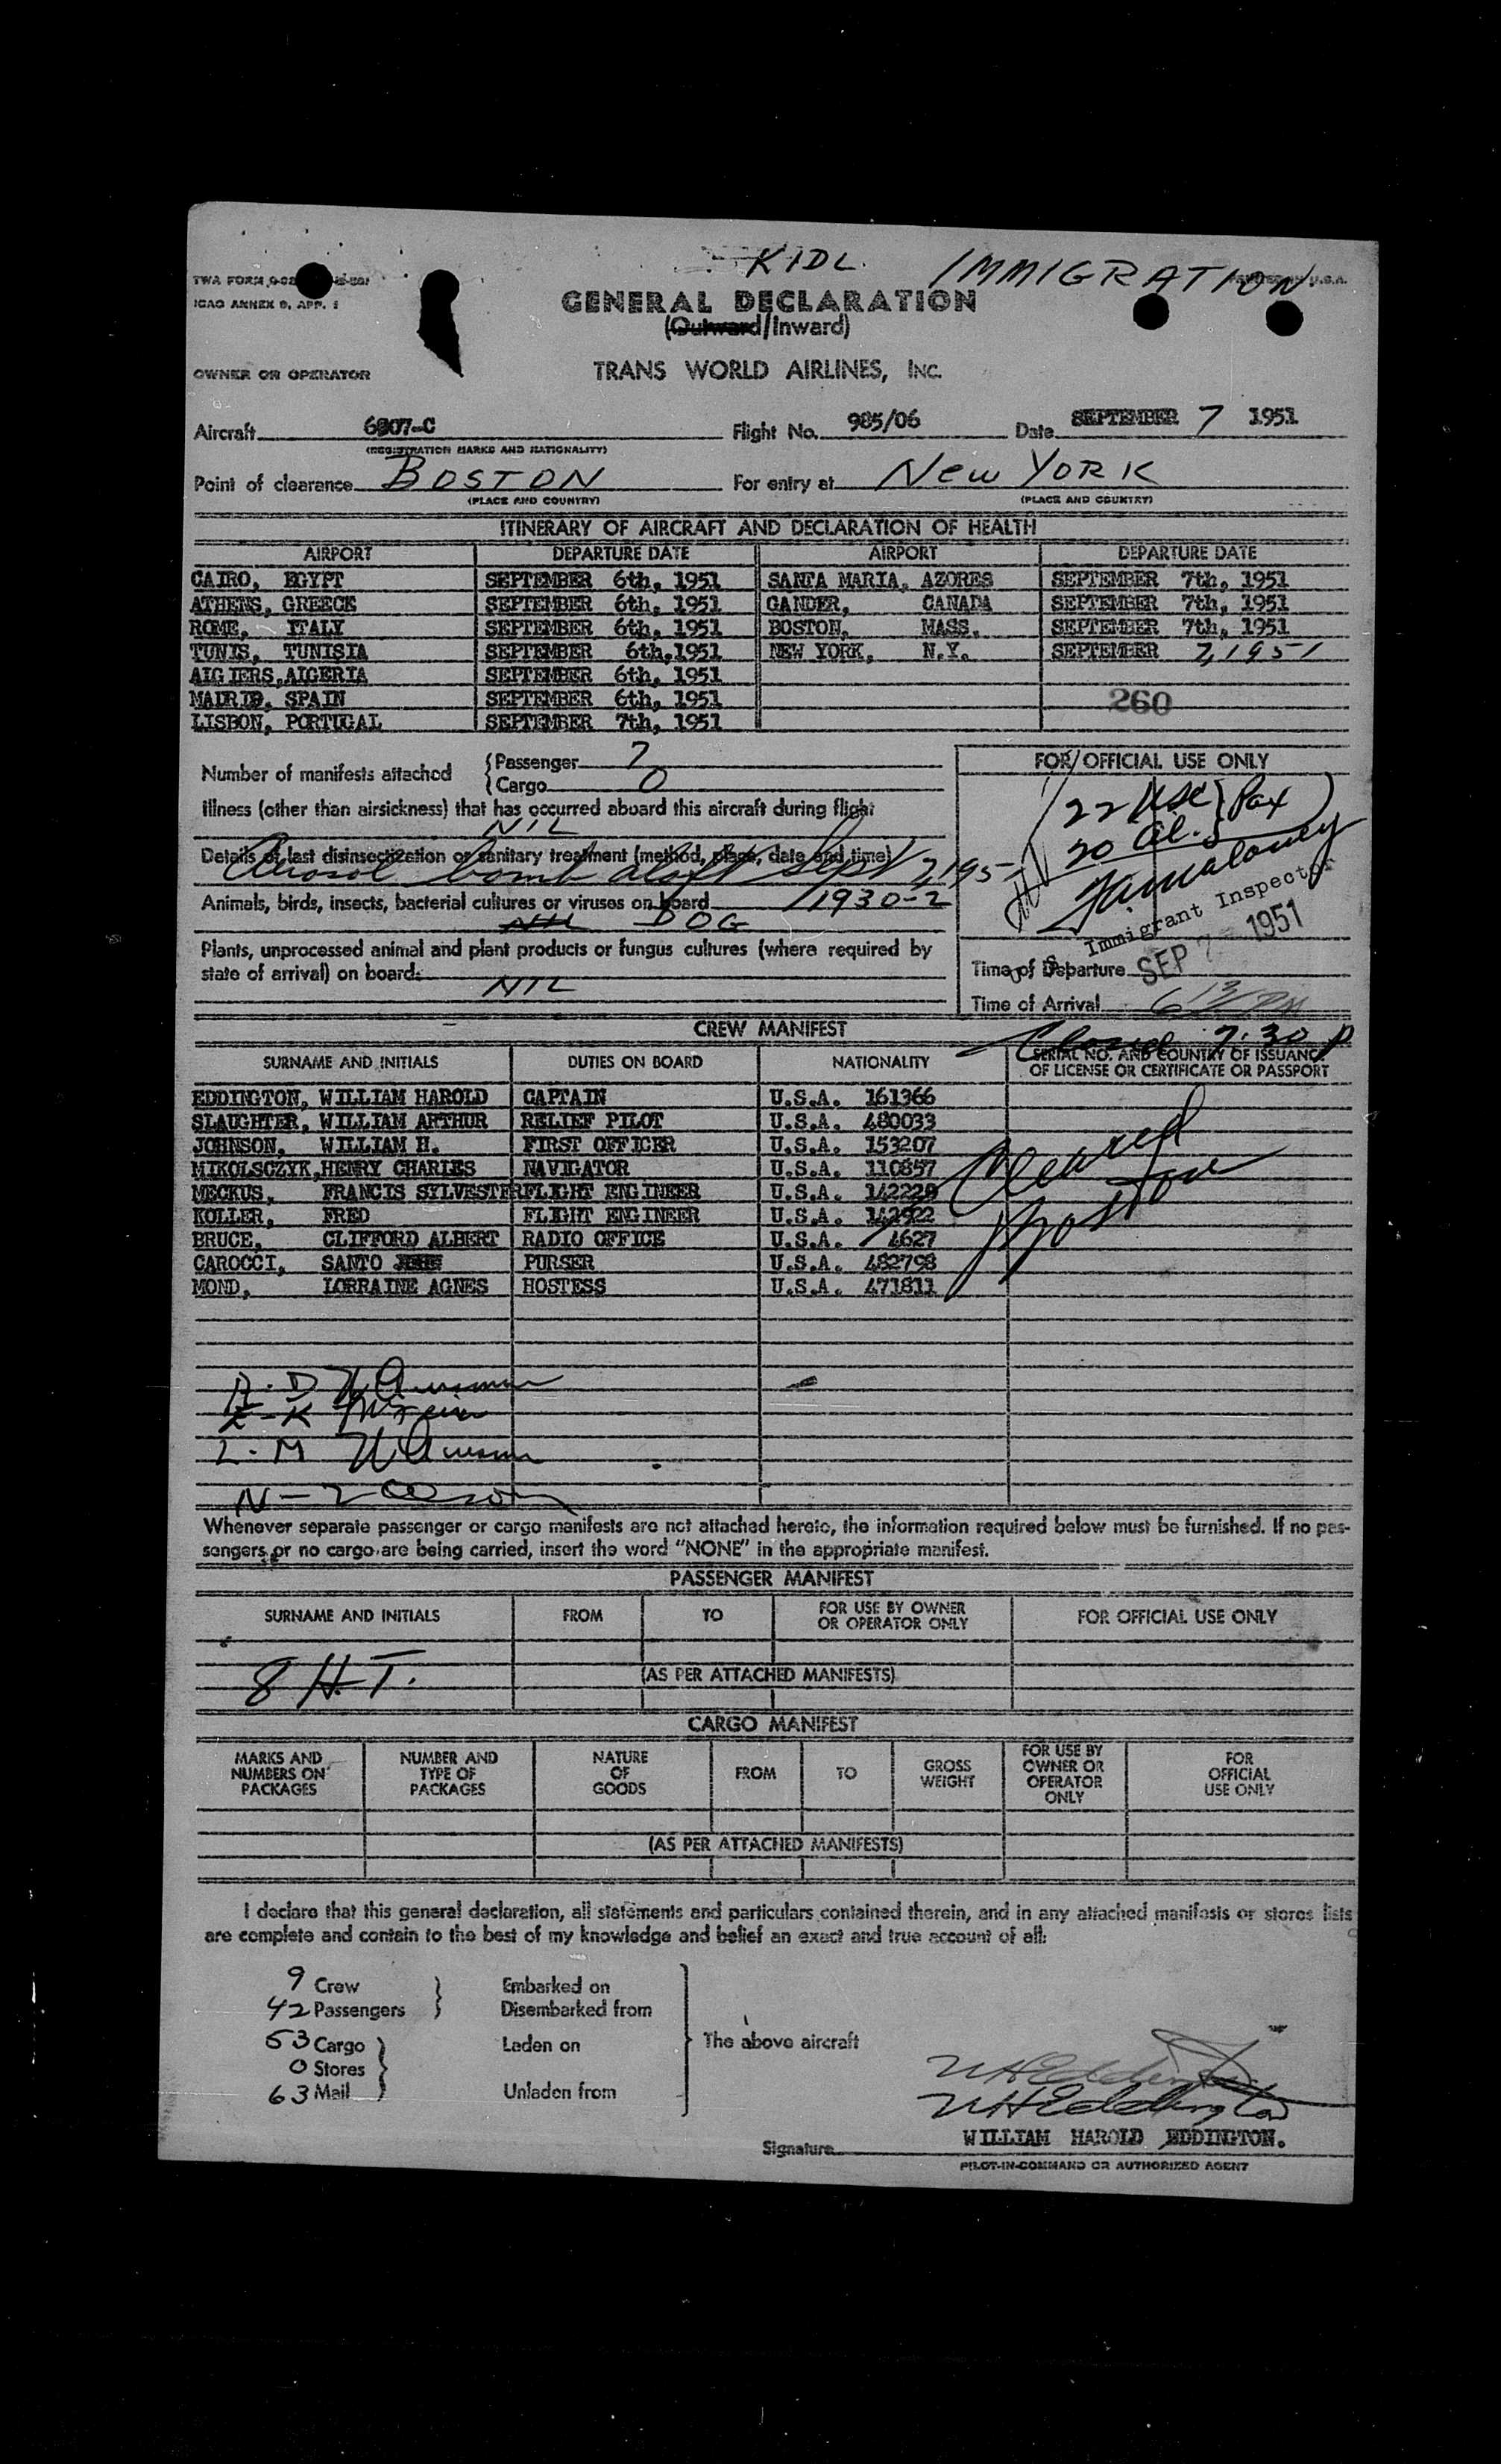 KIDL IMMIGRATION
TWA FORM
ICAO ANNEX 9, APP. 1
GENERAL DECLARATION
(Outward/Inward)
OWNER OR OPERATOR TRANS WORLD AIRLINES, INC.
Aircraft 6907-C Flight No. 985/06 Date SEPTEMBER 7 1951
(REGISTRATION MARKS AND NATIONALITY)
Point of clearance BOSTON For entry at New YORK
(PLACE AND COUNTRY) (PLACE AND COUNTRY)
ITINERARY OF AIRCRAFT AND DECLARATION OF HEALTH
AIRPORT DEPARTURE DATE AIRPORT DEPARTURE DATE
CAIRO, EGYPT SEPTEMBER 6th, 1951 SANTA MARIA, AZORES SEPTEMBER 7th, 1951
ATHENS, GREECE SEPTEMBER 6th, 1951 GANDER, CANADA SEPTEMBER 7th, 1951
ROME, ITALY SEPTEMBER 6th, 1951 BOSTON, MASS. SEPTEMBER 7th, 1951
TUNIS, TUNISIA SEPTEMBER 6th,1951 NEW YORK, N.Y. SEPTEMBER 7,1951
ALGIERS,ALGERIA SEPTEMBER 6th, 1951
MADRID, SPAIN SEPTEMBER 6th, 1951 260
LISBON, PORTUGAL SEPTEMBER 7th, 1951
Number of manifests attached {Passenger 7
{Cargo 0
FOR OFFICIAL USE ONLY
22 USC } Pax
20 Al.
Illness (other than airsickness) that has occurred aboard this aircraft during flight
NIL
Details of last disinsectization or sanitary treatment (method, place, date and time)
Aerosol bomb aloft Sept 7, 1951
1930-Z
Animals, birds, insects, bacterial cultures or viruses on board
NIL DOG
Immigrant Inspector
SEP 7 1951
Plants, unprocessed animal and plant products or fungus cultures (where required by
state of arrival) on board:
NIL
Time of Departure
Time of Arrival 6 13 PM
CREW MANIFEST
Closed 7:30 P
SURNAME AND INITIALS DUTIES ON BOARD NATIONALITY SERIAL NO. AND COUNTRY OF ISSUANCE
OF LICENSE OR CERTIFICATE OR PASSPORT
EDDINGTON, WILLIAM HAROLD CAPTAIN U.S.A. 161366
SLAUGHTER, WILLIAM ARTHUR RELIEF PILOT U.S.A. 480033
JOHNSON, WILLIAM H. FIRST OFFICER U.S.A. 153207
MIKOLSCZYK,HENRY CHARLES NAVIGATOR U.S.A. 110857
MECKUS, FRANCIS SYLVESTER FLIGHT ENGINEER U.S.A. 142229
KOLLER, FRED FLIGHT ENGINEER U.S.A. 142922
BRUCE, CLIFFORD ALBERT RADIO OFFICE U.S.A. 4627
CAROCCI, SANTO PURSER U.S.A. 482798
MOND, LORRAINE AGNES HOSTESS U.S.A. 471811
Cleared
Boston
A. D
E-K
L-M
N-Z
Whenever separate passenger or cargo manifests are not attached hereto, the information required below must be furnished. If no pas-
sengers or no cargo are being carried, insert the word "NONE" in the appropriate manifest.
PASSENGER MANIFEST
SURNAME AND INITIALS FROM TO FOR USE BY OWNER
OR OPERATOR ONLY FOR OFFICIAL USE ONLY
8 H.T. (AS PER ATTACHED MANIFESTS)
CARGO MANIFEST
MARKS AND
NUMBERS ON
PACKAGES
NUMBER AND
TYPE OF
PACKAGES
NATURE
OF
GOODS
FROM
TO
GROSS
WEIGHT
FOR USE BY
OWNER OR
OPERATOR
ONLY
FOR
OFFICIAL
USE ONLY
(AS PER ATTACHED MANIFESTS)
I declare that this general declaration, all statements and particulars contained therein, and in any attached manifests or stores lists
are complete and contain to the best of my knowledge and belief an exact and true account of all:
9 Crew } Embarked on
42 Passengers Disembarked from
53 Cargo } Laden on The above aircraft
0 Stores
63 Mail Unladen from
WHEddington
WHEddington
WILLIAM HAROLD EDDINGTON.
Signature
PILOT-IN-COMMAND OR AUTHORIZED AGENT